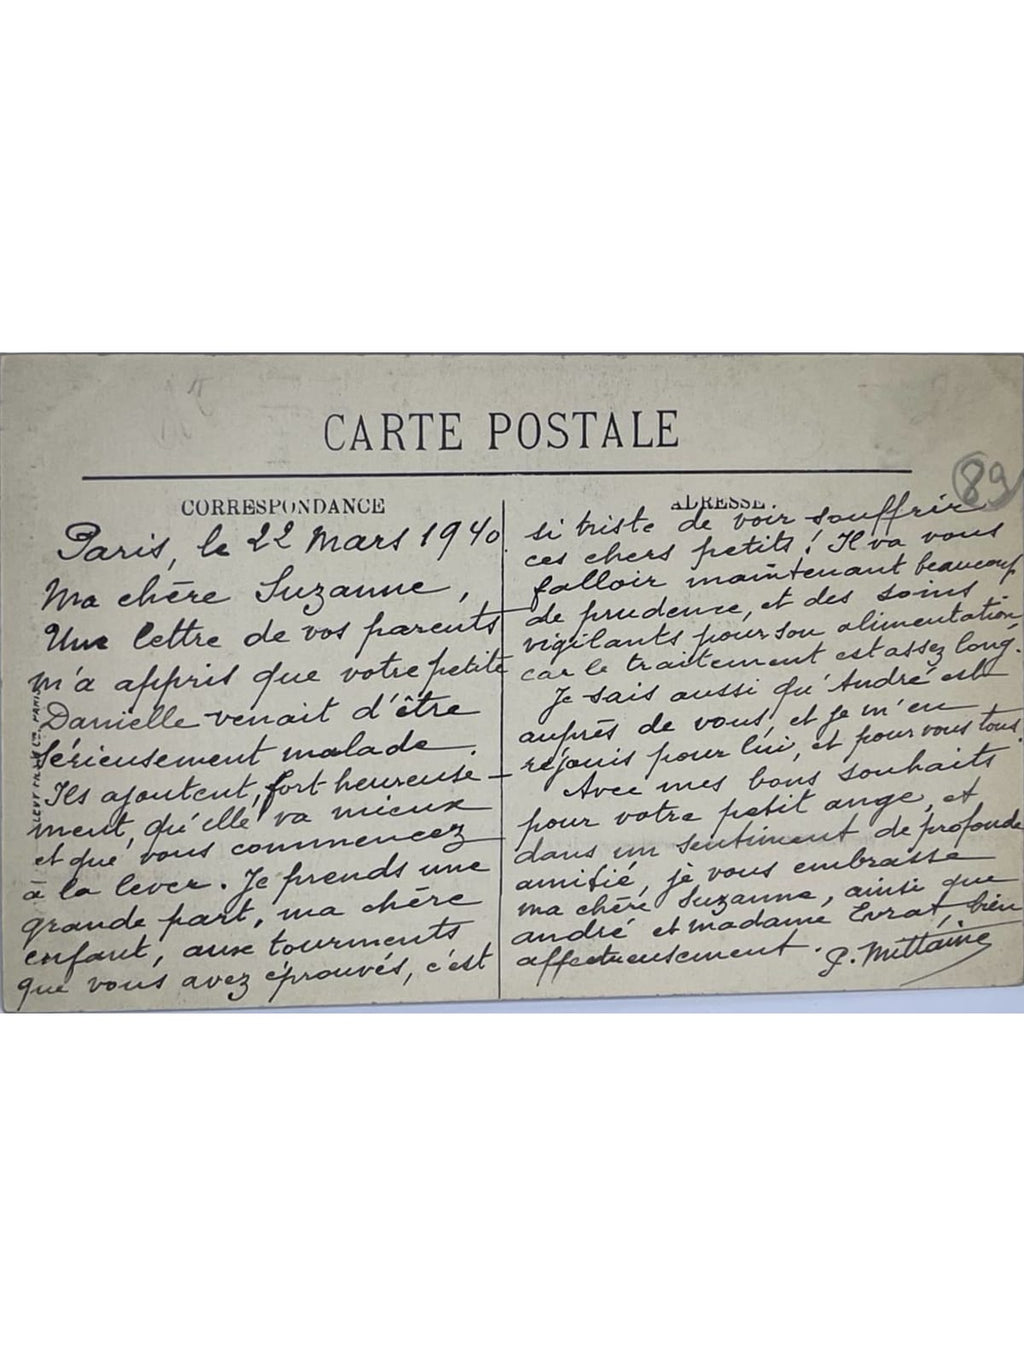 CARTE POSTALE
CORRESPONDANCE
Paris, le 22 Mars 1940
Ma chère Suzanne,
Une lettre de vos parents
m'a appris que votre petite
Danielle venait d'être
sérieusement malade.
Ils ajoutent, fort heureuse-
ment, qu'elle va mieux
et que vous commencez
à la lever. Je prends une
grande part, ma chère
enfant, aux tourments
que vous avez éprouvés, c'est
ADRESSE.
89
si triste de voir souffrir
ces chers petits! Il va vous
falloir maintenant beaucoup
de prudence, et des soins
vigilants pour son alimentation,
car le traitement est assez long.
Je sais aussi qu'André est
auprès de vous, et je m'en
réjouis pour lui, et pour vous tous.
Avec mes bons souhaits
pour votre petit ange, et
dans un sentiment de profonde
amitié, je vous embrasse
ma chère Suzanne, ainsi que
andré et madame Evrat, bien
affectueusement. P. Mittaine